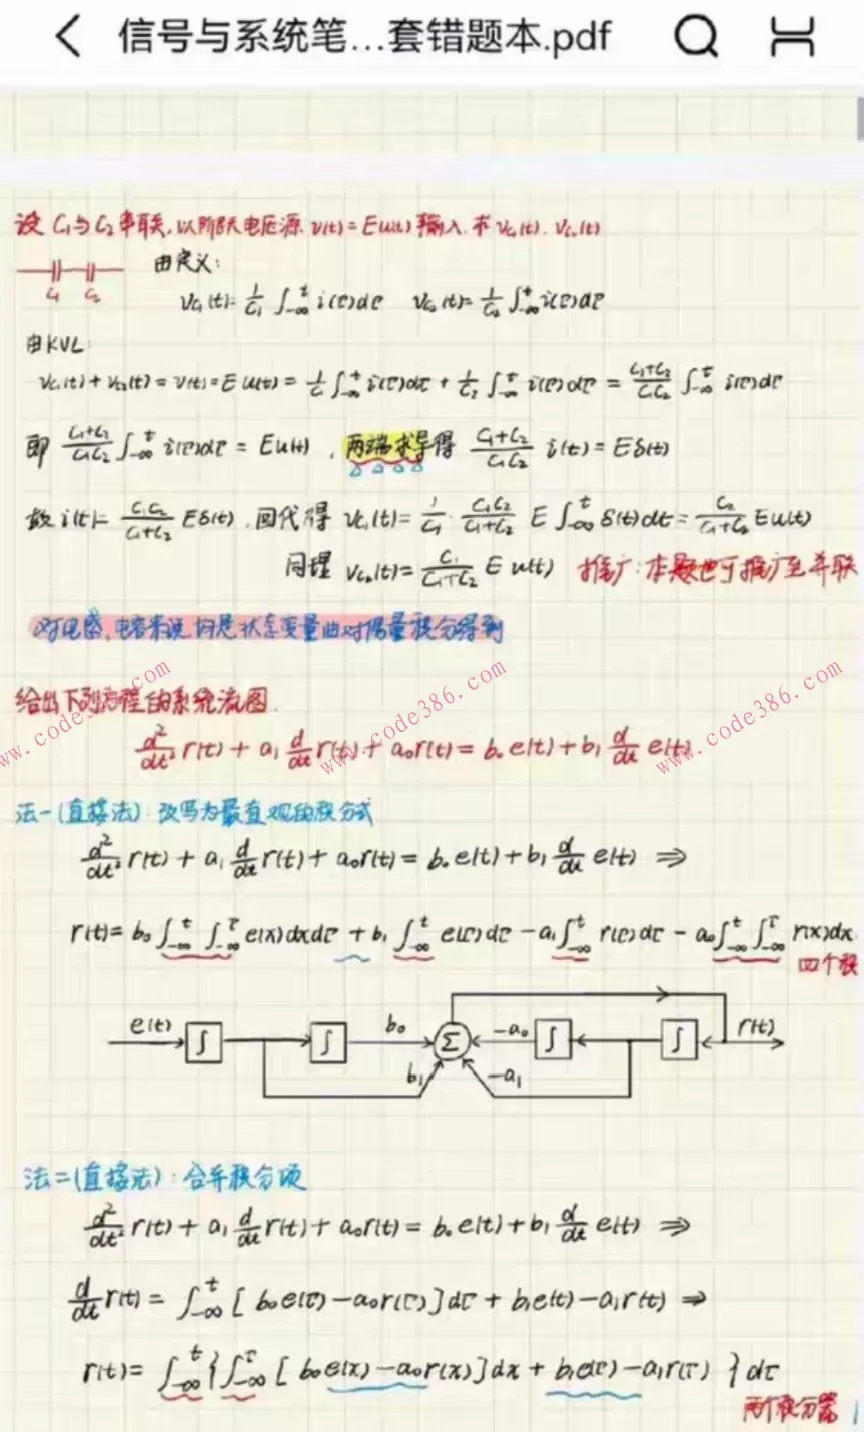 信号与系统笔...套错题本.pdf
设 C₁与 C₂ 串联, 以阶跃电压源 v(t) = Eu(t) 输入, 求 v_{C₁}(t). v_{C₂}(t)
C₁ C₂
由定义:
v_{C₁}(t) = \frac{1}{C₁} ∫_{-∞}^{t} i(τ)dτ v_{C₂}(t) = \frac{1}{C₂} ∫_{-∞}^{t} i(τ)dτ
由KVL:
v_{C₁}(t) + v_{C₂}(t) = v(t) = E u(t) = \frac{1}{C₁} ∫_{-∞}^{t} i(τ)dτ + \frac{1}{C₂} ∫_{-∞}^{t} i(τ)dτ = \frac{C₁+C₂}{C₁C₂} ∫_{-∞}^{t} i(τ)dτ
即 \frac{C₁+C₂}{C₁C₂} ∫_{-∞}^{t} i(τ)dτ = Eu(t), 两端求导得 \frac{C₁+C₂}{C₁C₂} i(t) = Eδ(t)
故 i(t) = \frac{C₁C₂}{C₁+C₂} Eδ(t), 回代得 v_{C₁}(t) = \frac{1}{C₁} · \frac{C₁C₂}{C₁+C₂} E ∫_{-∞}^{t} δ(t)dt = \frac{C₂}{C₁+C₂} Eu(t)
同理 v_{C₂}(t) = \frac{C₁}{C₁+C₂} E u(t) 推广: 本题也可推广至并联
对电感, 电容来说, 均是状态变量由对偶量积分得到
给出下列方程的系统流图.
\frac{d²}{dt²} r(t) + a₁ \frac{d}{dt} r(t) + a₀r(t) = b₀e(t) + b₁ \frac{d}{dt} e(t)
www.code386.com www.code386.com www.code386.com
法一(直接法): 改写为最直观的积分式
\frac{d²}{dt²} r(t) + a₁ \frac{d}{dt} r(t) + a₀r(t) = b₀e(t) + b₁ \frac{d}{dt} e(t) ⇒
r(t) = b₀ ∫_{-∞}^{t} ∫_{-∞}^{τ} e(x)dxdτ + b₁ ∫_{-∞}^{t} e(τ)dτ - a₁ ∫_{-∞}^{t} r(τ)dτ - a₀ ∫_{-∞}^{t} ∫_{-∞}^{τ} r(x)dx
四个积
e(t) ∫ ∫ b₀ Σ -a₀ ∫ ∫ r(t)
b₁ -a₁
法二(直接法): 合并积分项
\frac{d²}{dt²} r(t) + a₁ \frac{d}{dt} r(t) + a₀r(t) = b₀e(t) + b₁ \frac{d}{dt} e(t) ⇒
\frac{d}{dt} r(t) = ∫_{-∞}^{t} [ b₀e(τ) - a₀r(τ) ]dτ + b₁e(t) - a₁r(t) ⇒
r(t) = ∫_{-∞}^{t} { ∫_{-∞}^{τ} [ b₀e(x) - a₀r(x) ]dx + b₁e(τ) - a₁r(τ) } dτ
两个积分器